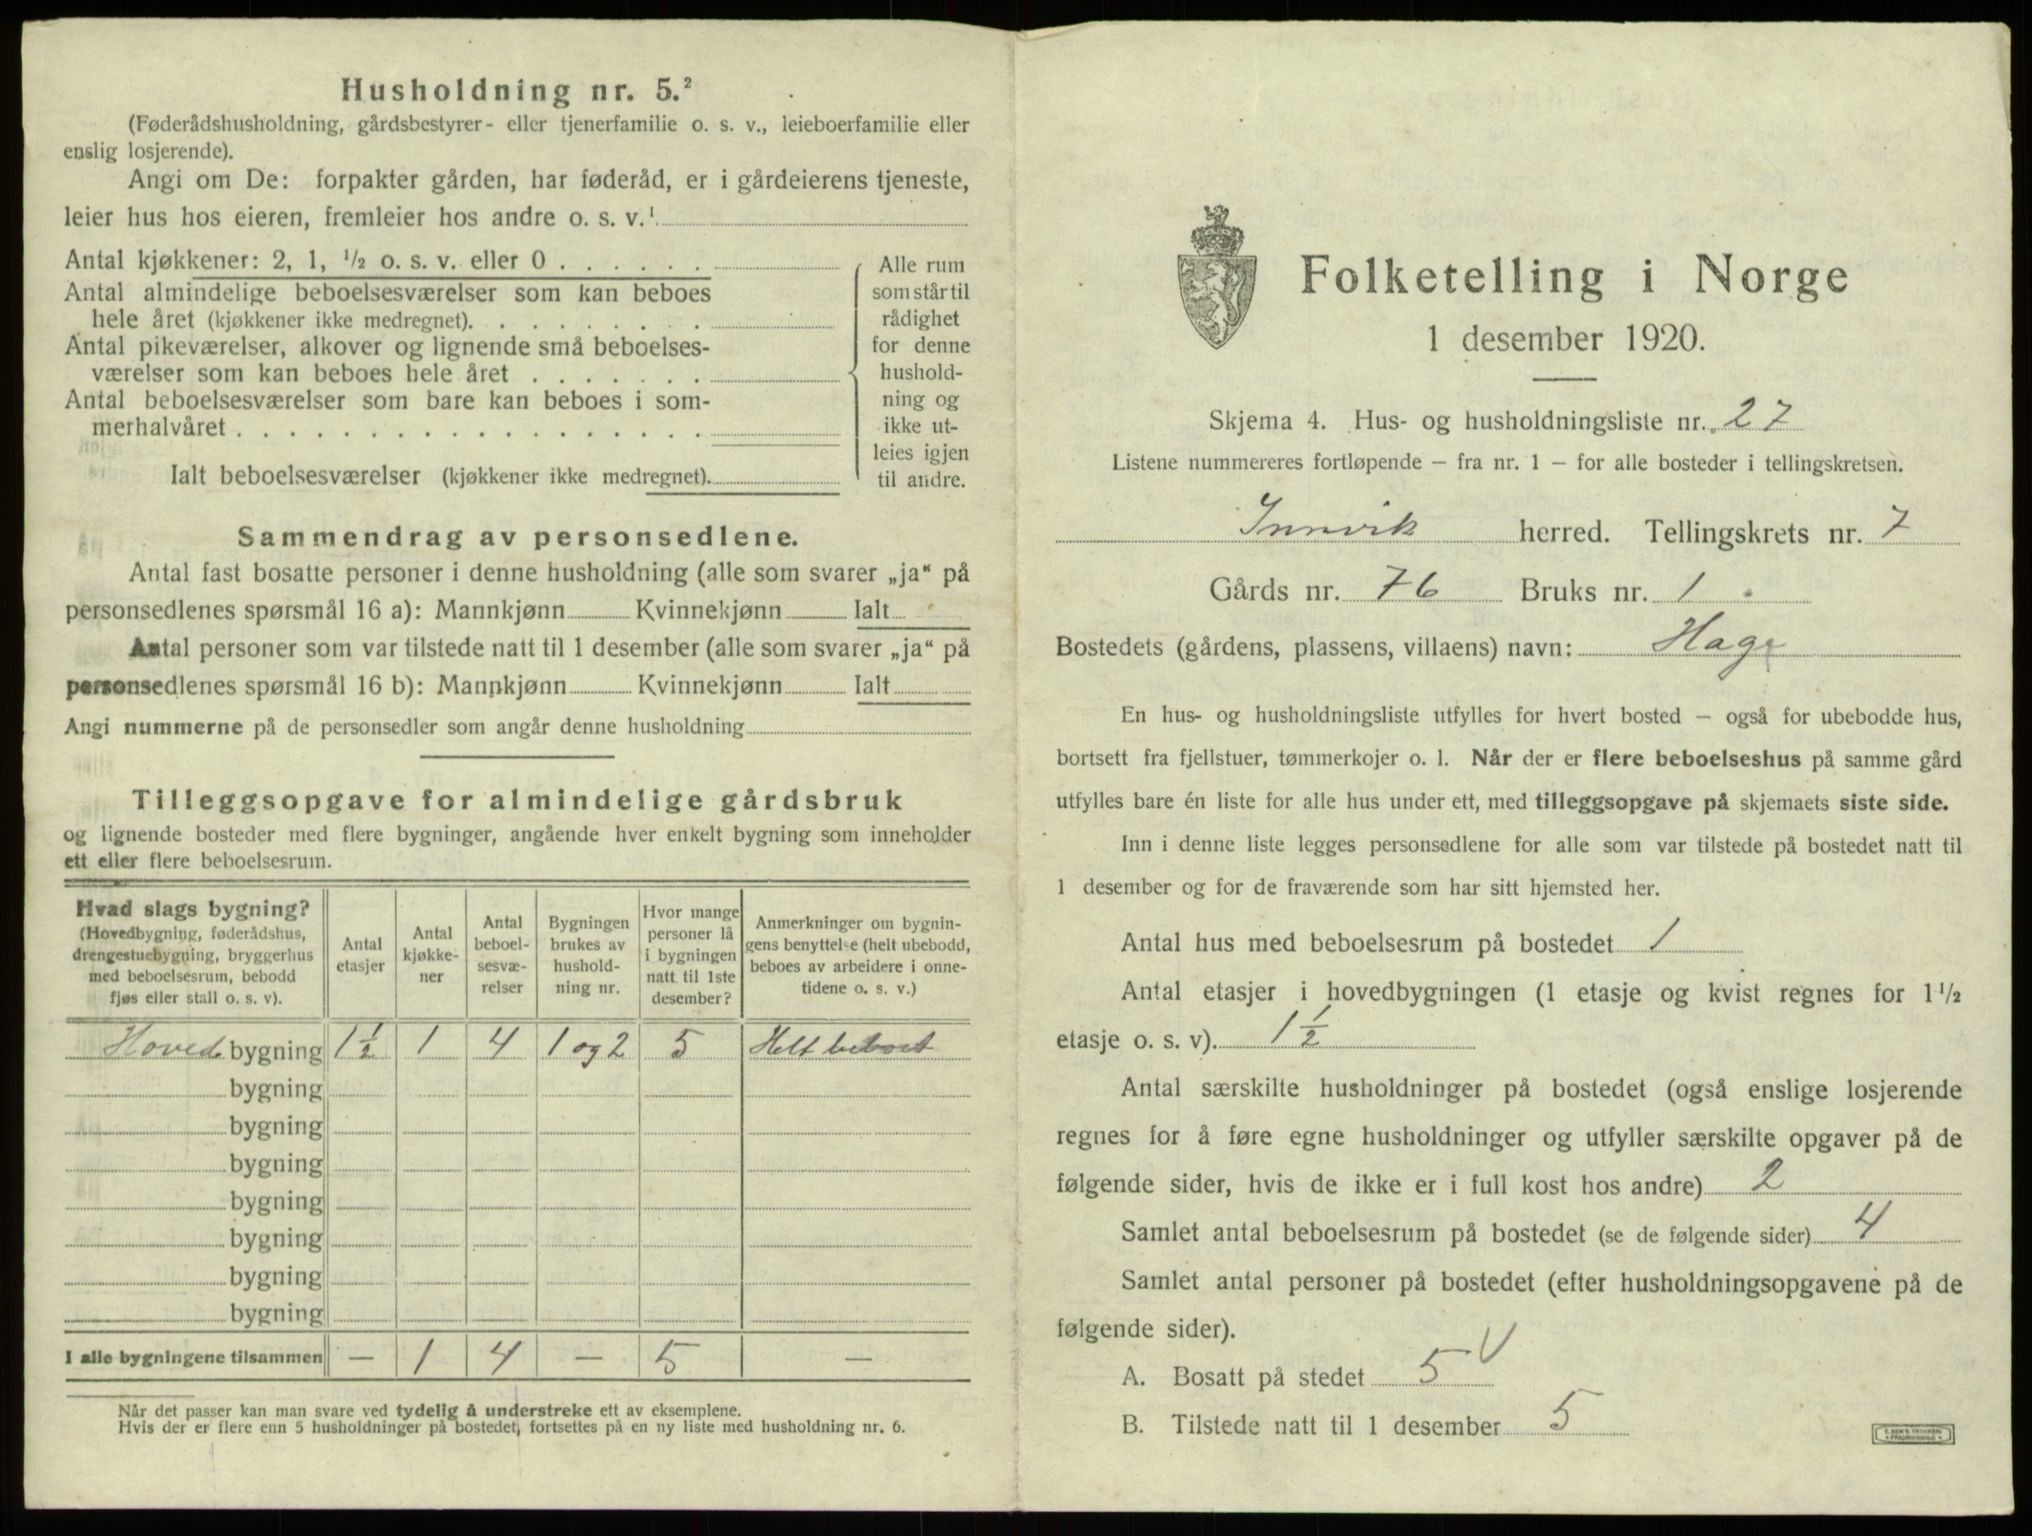 Husholdning nr. 5.²
(Føderådshusholdning, gårdsbestyrer- eller tjenerfamilie o. s. v., leieboerfamilie eller
enslig losjerende).
Angi om De: forpakter gården, har føderåd, er i gårdeierens tjeneste,
leier hus hos eieren, fremleier hos andre o. s. v.¹
Antal kjøkkener: 2, 1, ½ o. s. v. eller 0 . . . . . .
Antal almindelige beboelsesværelser som kan beboes
hele året (kjøkkener ikke medregnet). . . . . . . . .
Antal pikeværelser, alkover og lignende små beboelses-
værelser som kan beboes hele året . . . . . . .
Antal beboelsesværelser som bare kan beboes i som-
merhalvåret . . . . . . . . . . . . . . . . . .
Ialt beboelsesværelser (kjøkkener ikke medregnet).
Alle rum
som står til
rådighet
for denne
hushold-
ning og
ikke ut-
leies igjen
til andre.
Sammendrag av personsedlene.
Antal fast bosatte personer i denne husholdning (alle som svarer „ja“ på
personsedlenes spørsmål 16 a): Mannkjønn Kvinnekjønn Ialt
Antal personer som var tilstede natt til 1 desember (alle som svarer „ja“ på
personsedlenes spørsmål 16 b): Mannkjønn Kvinnekjønn Ialt
Angi nummerne på de personsedler som angår denne husholdning
Tilleggsopgave for almindelige gårdsbruk
og lignende bosteder med flere bygninger, angående hver enkelt bygning som inneholder
ett eller flere beboelsesrum.
Hvad slags bygning?
(Hovedbygning, føderådshus,
drengestuebygning, bryggerhus
med beboelsesrum, bebodd
fjøs eller stall o. s. v).
Antal
etasjer
Antal
kjøkke-
ner
Antal
beboel-
sesvæ-
relser
Bygningen
brukes av
hushold-
ning nr.
Hvor mange
personer lå
i bygningen
natt til 1ste
desember?
Anmerkninger om bygnin-
gens benyttelse (helt ubebodd,
beboes av arbeidere i onne-
tidene o. s. v.)
Hoved bygning 1½ 1 4 1 og 2 5 Helt beboet
bygning
bygning
bygning
bygning
bygning
bygning
bygning
I alle bygningene tilsammen — 1 4 — 5 —
Når det passer kan man svare ved tydelig å understreke ett av eksemplene.
Hvis der er flere enn 5 husholdninger på bostedet, fortsettes på en ny liste med husholdning nr. 6.
Folketelling i Norge
1 desember 1920.
Skjema 4. Hus- og husholdningsliste nr. 27
Listene nummereres fortløpende – fra nr. 1 – for alle bosteder i tellingskretsen.
Innvik herred. Tellingskrets nr. 7
Gårds nr. 76 Bruks nr. 1
Bostedets (gårdens, plassens, villaens) navn: Hage
En hus- og husholdningsliste utfylles for hvert bosted – også for ubebodde hus,
bortsett fra fjellstuer, tømmerkojer o. l. Når der er flere beboelseshus på samme gård
utfylles bare én liste for alle hus under ett, med tilleggsopgave på skjemaets siste side.
Inn i denne liste legges personsedlene for alle som var tilstede på bostedet natt til
1 desember og for de fraværende som har sitt hjemsted her.
Antal hus med beboelsesrum på bostedet 1
Antal etasjer i hovedbygningen (1 etasje og kvist regnes for 1½
etasje o. s. v). 1½
Antal særskilte husholdninger på bostedet (også enslige losjerende
regnes for å føre egne husholdninger og utfyller særskilte opgaver på de
følgende sider, hvis de ikke er i full kost hos andre) 2
Samlet antal beboelsesrum på bostedet (se de følgende sider) 4
Samlet antal personer på bostedet (efter husholdningsopgavene på de
følgende sider).
A. Bosatt på stedet 5 V
B. Tilstede natt til 1 desember 5